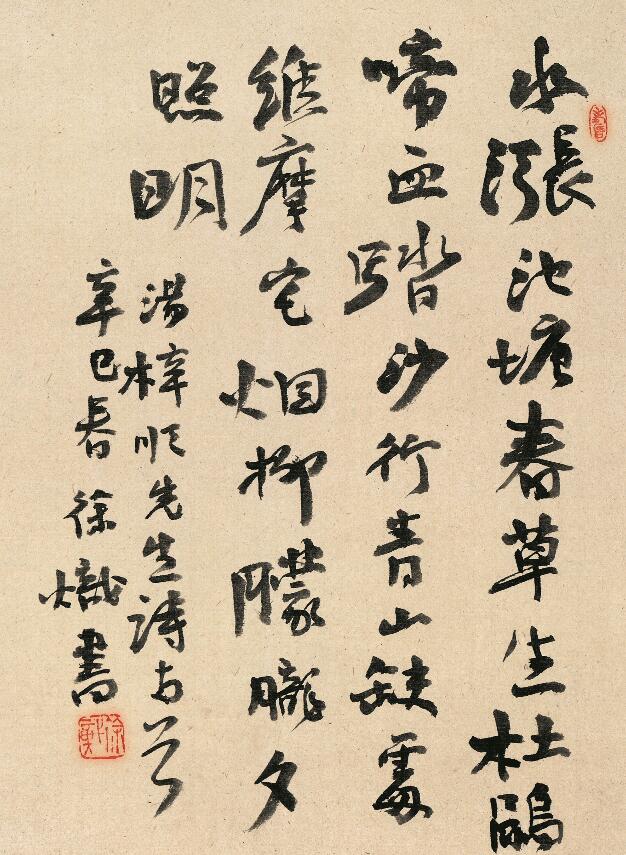 水漲池塘春草生杜鵑
啼血踏沙行青山缺處
維摩宅烟柳朦朧夕
照明
湯梓順先生詩
辛巳春徐熾書